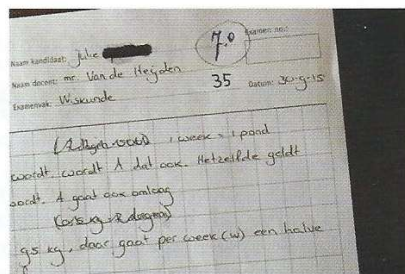 Naam kandidaat: Julie
7.0
Examen nr.:
Naam docent: mr. Van de Heijden
35
Datum: 30-9-15
Examenvak: Wiskunde
1 week = 1 pond
wordt, wordt A dat ook. Hetzelfde geldt
wordt. A gaat ook omloog
95 kg, daar gaat per week (w) een halve